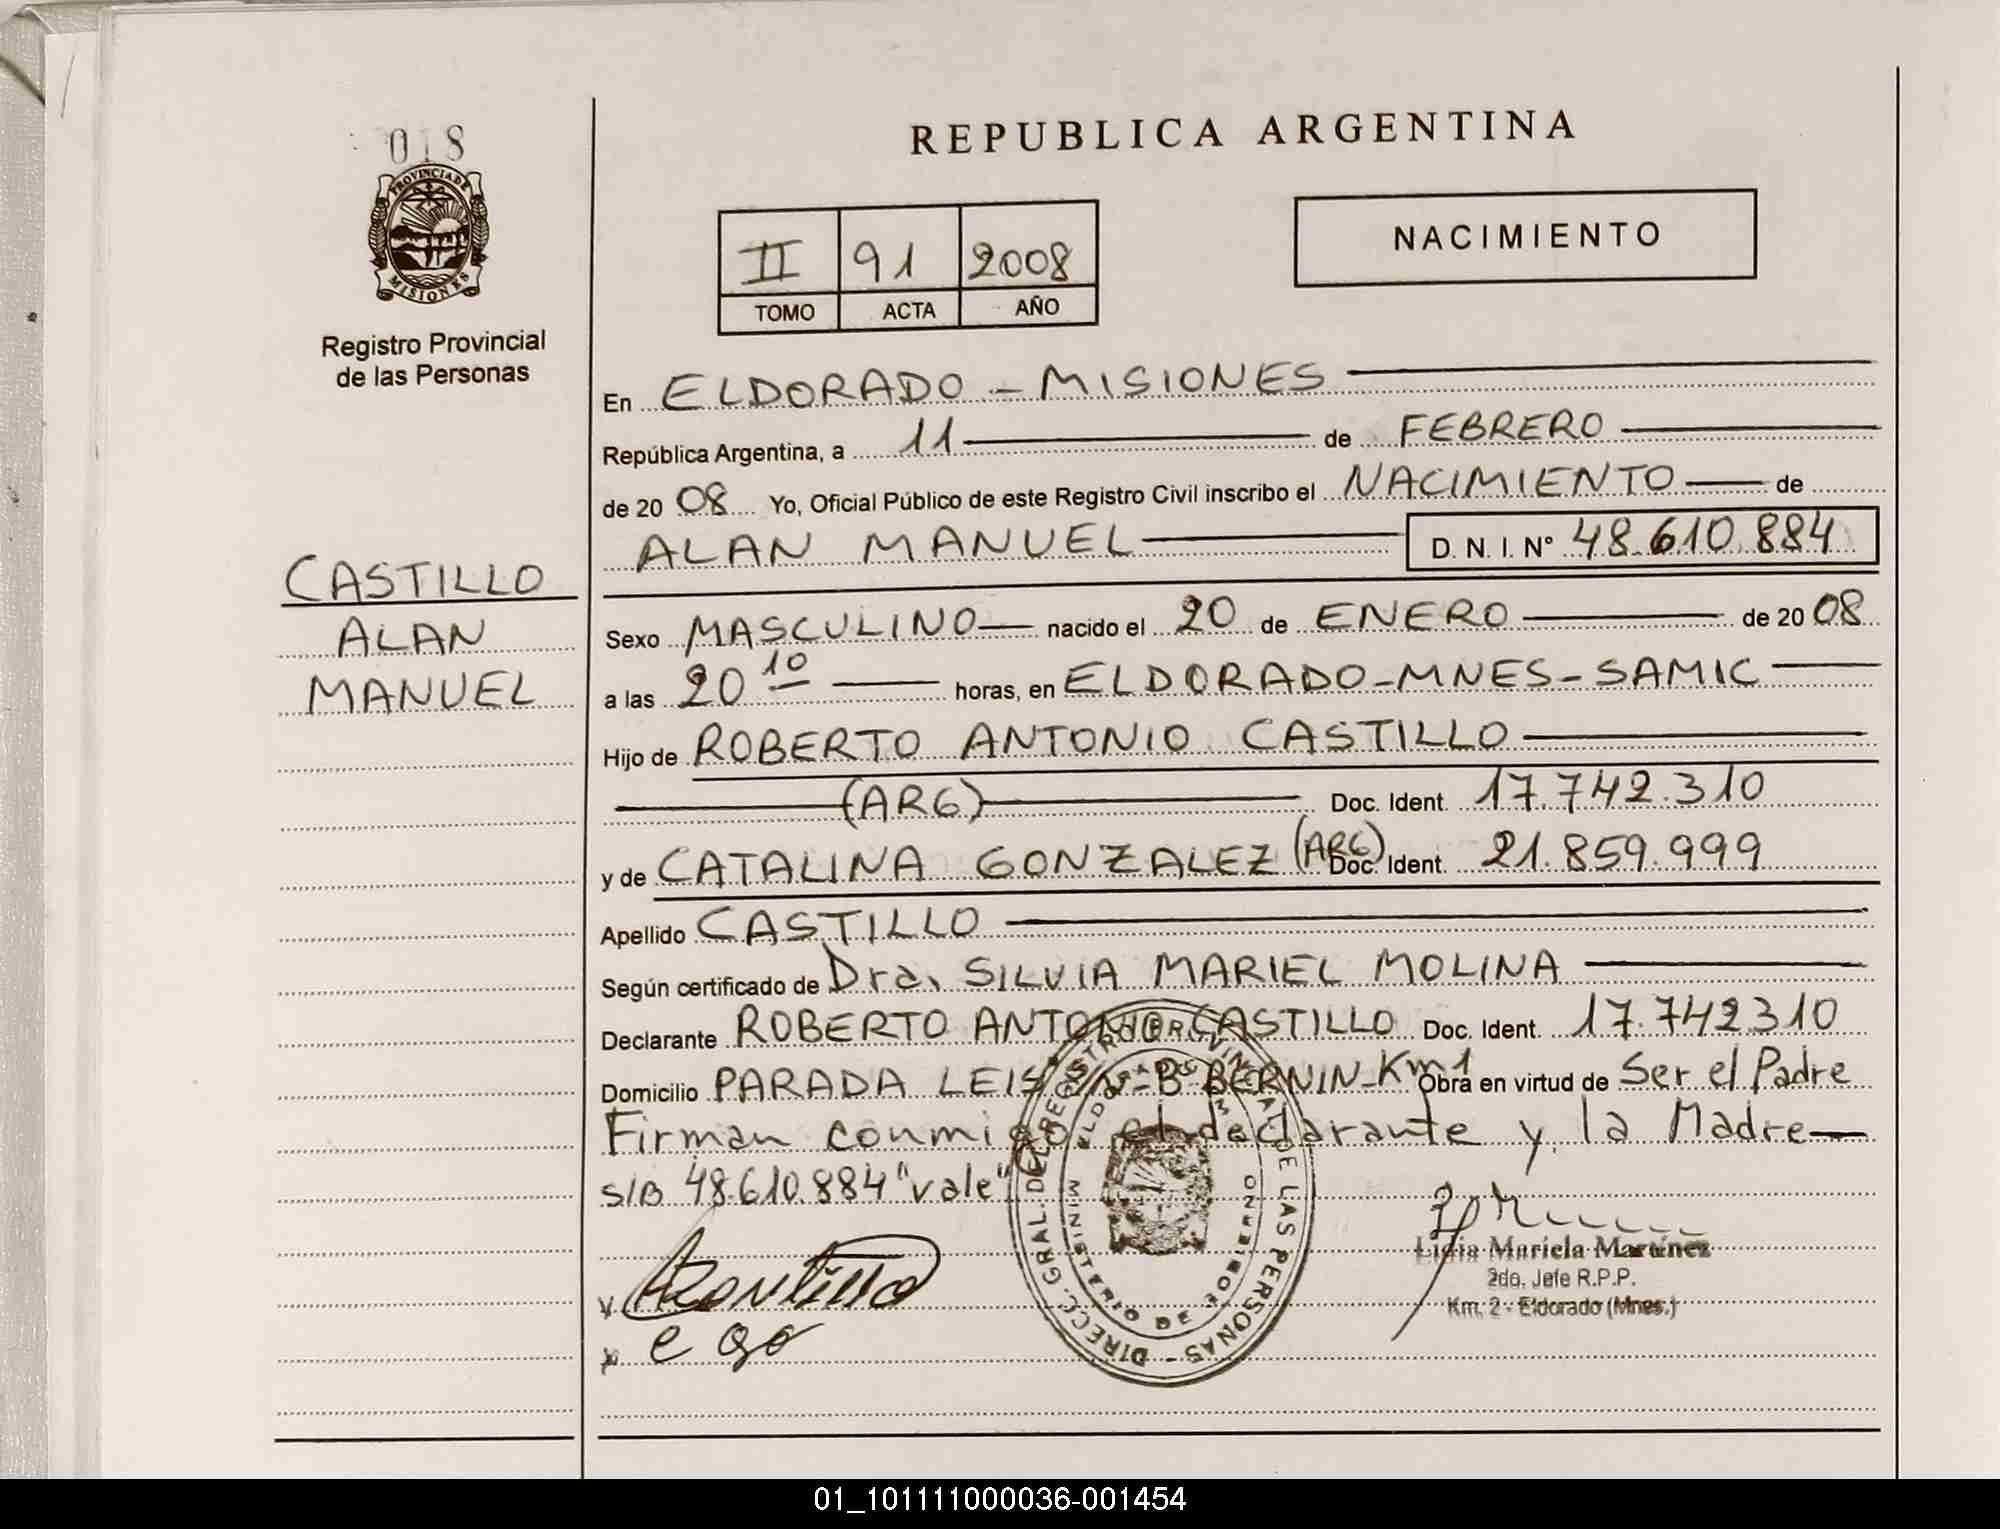 018
PROVINCIA DE
MISIONES
Registro Provincial
de las Personas
REPUBLICA ARGENTINA
II 91 2008
TOMO ACTA AÑO
NACIMIENTO
En ELDORADO - MISIONES
República Argentina, a 11 de FEBRERO
de 2008 Yo, Oficial Público de este Registro Civil inscribo el NACIMIENTO de
ALAN MANUEL D. N. I. N° 48.610.884
CASTILLO
ALAN
MANUEL
Sexo MASCULINO nacido el 20 de ENERO de 2008
a las 20 10 horas, en ELDORADO-MNES-SAMIC
Hijo de ROBERTO ANTONIO CASTILLO
(ARG) Doc. Ident. 17.742.310
y de CATALINA GONZALEZ (ARG) Doc. Ident. 21.859.999
Apellido CASTILLO
Según certificado de Dra. SILVIA MARIEL MOLINA
Declarante ROBERTO ANTONIO CASTILLO Doc. Ident. 17.742310
Domicilio PARADA LEIS S/N-B-BERNIN-Km1 Obra en virtud de Ser el Padre
Firman conmigo el declarante y la Madre
S/B 48.610.884 "vale"
DIRECC. GRAL. DEL REGISTRO PROVINCIAL DE LAS PERSONAS
MINISTERIO DE GOBIERNO
Lidia Mariela Martínez
2do. Jefe R.P.P.
Km. 2 - Eldorado (Mnes.)
01_101111000036-001454